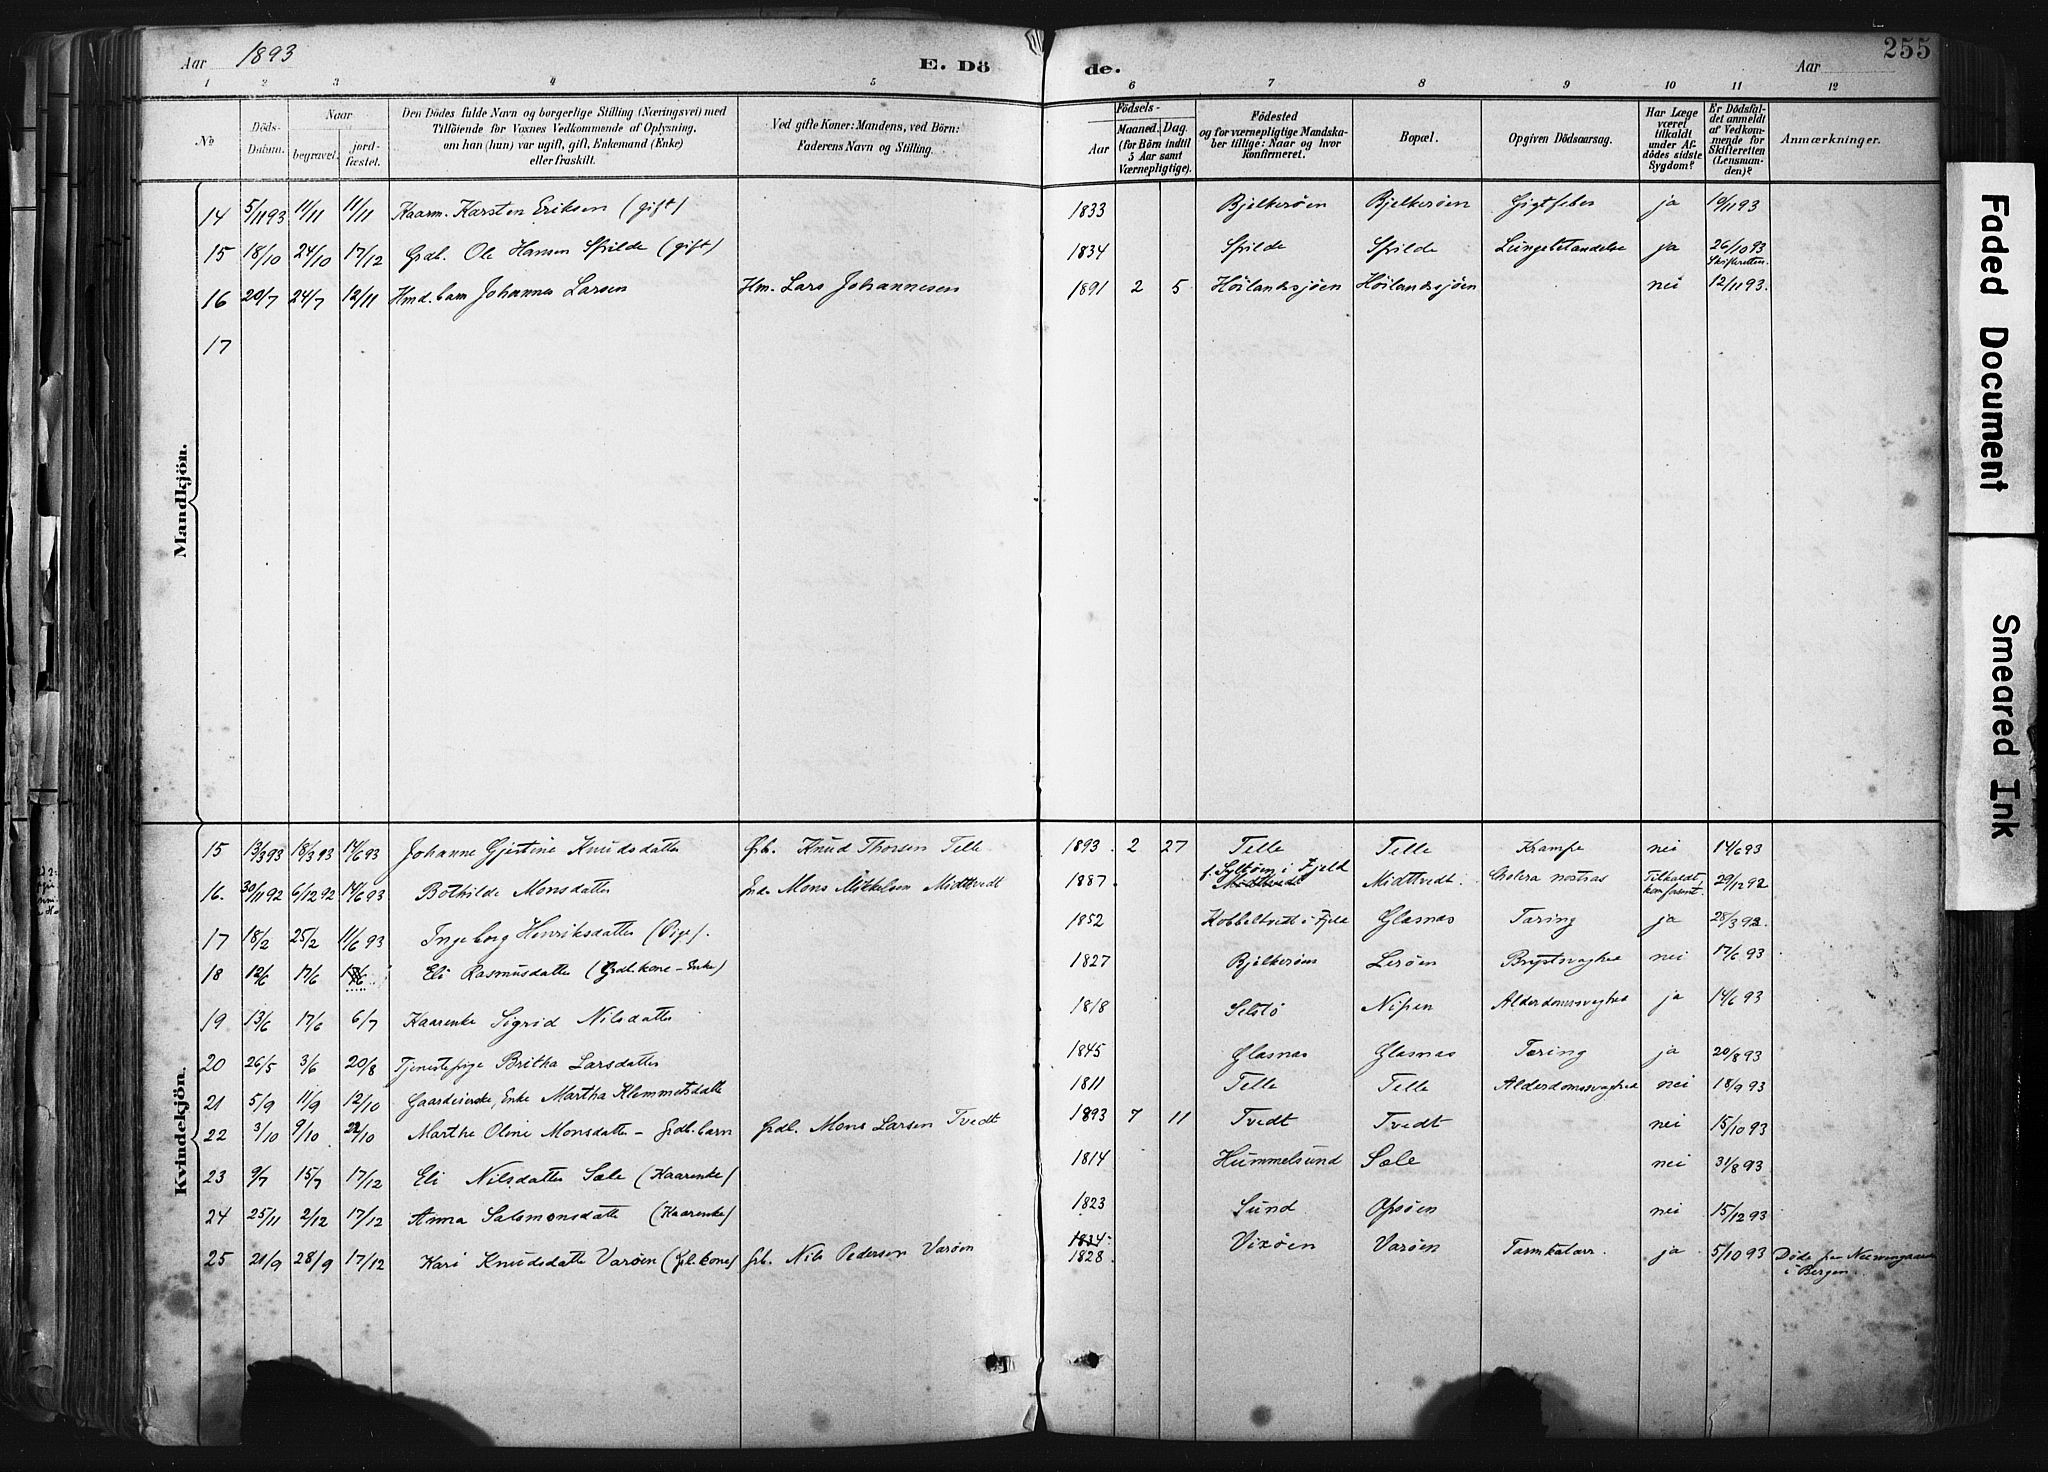 Aar 1893 E. Dö de. Aar 255
1 2 3 4 5 6 7 8 9 10 11 12
No
Döds-Datum.
Naar
begravet.
jord-fæstet.
Den Dödes fulde Navn og borgerlige Stilling (Næringsvei) med
Tilföiende for Voxnes Vedkommende af Oplysning,
om han (hun) var ugift, gift, Enkemand (Enke)
eller fraskilt.
Ved gifte Koner: Mandens, ved Börn:
Faderens Navn og Stilling.
Födsels-
Aar
Maaned. Dag.
(for Börn indtil
5 Aar samt
Værnepligtige).
Födested
og for værnepligtige Mandska-
ber tillige: Naar og hvor
Konfirmeret.
Bopæl.
Opgiven Dödsaarsag.
Har Læge
været
tilkaldt
under Af-
dödes sidste
Sygdom?
Er Dödsfal-
det anmeldt
af Vedkom-
mende for
Skifteretten
(Lensman-
den)?
Anmærkninger.
Mandkjön.
14 5/11 93 11/11 11/11 Kaarm. Karsten Eriksen (gift) 1833 Bjelkeröen Bjelkeröen Gigtfeber ja 19/11 93
15 18/10 24/10 17/12 Grdb. Ole Hansen Spilde (gift) 1834 Spilde Spilde Lungebetændelse ja 26/10 93 Skifteretten.
16 20/7 24/7 12/11 Hmd. barn Johannes Larsen Hm. Lars Johannesen 1891 2 5 Höilandsjöen Höilandsjöen nei 12/11 93.
17
Kvindekjön.
15 13/3 93 18/3 93 14/6 93 Johanne Gjertine Knudsdatter Grb. Knud Thorsen Telle 1893 2 27 Telle Telle Krampe nei 14/6 93
16. 30/11 92 6/12 92 14/6 93 Bothilde Monsdatter Grd. Mons Mikkelsen Midttvedt 1887 f. Syltöen i Fjeld Midttvedt Midttvedt. Cholera nostras Tilkaldt, kom for sent. 29/12 92
17 18/2 25/2 11/6 93 Ingeborg Henriksdatter (Pige). 1852 Kobbeltvedt i Fjeld Glasnæs Tæring ja 28/3 92.
18 12/6 17/6 17/6 Eli Rasmusdatter (Grdb. kone - Enke) 1827 Bjelkeröen Leröen Brystsvaghed nei 17/6 93
19 13/6 17/6 6/7 Kaarenke Sigrid Nilsdatter 1818 Selstö Nipen Alderdomssvaghed ja 14/6 93
20 26/5 3/6 20/8 Tjenestepige Britha Larsdatter 1845 Glasnæs Glasnæs Tæring ja 20/8 93
21 5/9 11/9 12/10 Gaardeierske, Enke Martha Klemmetsdatter 1811 Telle Telle Alderdomssvaghed nei 18/9 93
22 3/10 9/10 22/10 Marthe Oline Monsdatter - Grdb. barn Grdb. Mons Larsen Tvedt 1893 7 11 Tvedt Tvedt nei 15/10 93
23 9/7 15/7 17/12 Eli Nilsdatter Sæle (Kaarenke) 1814 Hummelsund Sæle nei 31/8 93
24 25/11 2/12 17/12 Anna Salomonsdatter (Kaarenke) 1823 Sund Opsöen nei 15/12 93
25 21/9 28/9 17/12 Kari Knudsdatter Varöen (Grb. kone) Grb. Nils Pedersen Varöen 1834 1828 Vixöen Varöen Tarmkatarr. ja 5/10 93 Döde paa Neevengaarden i Bergen.
Faded Document
Smeared Ink